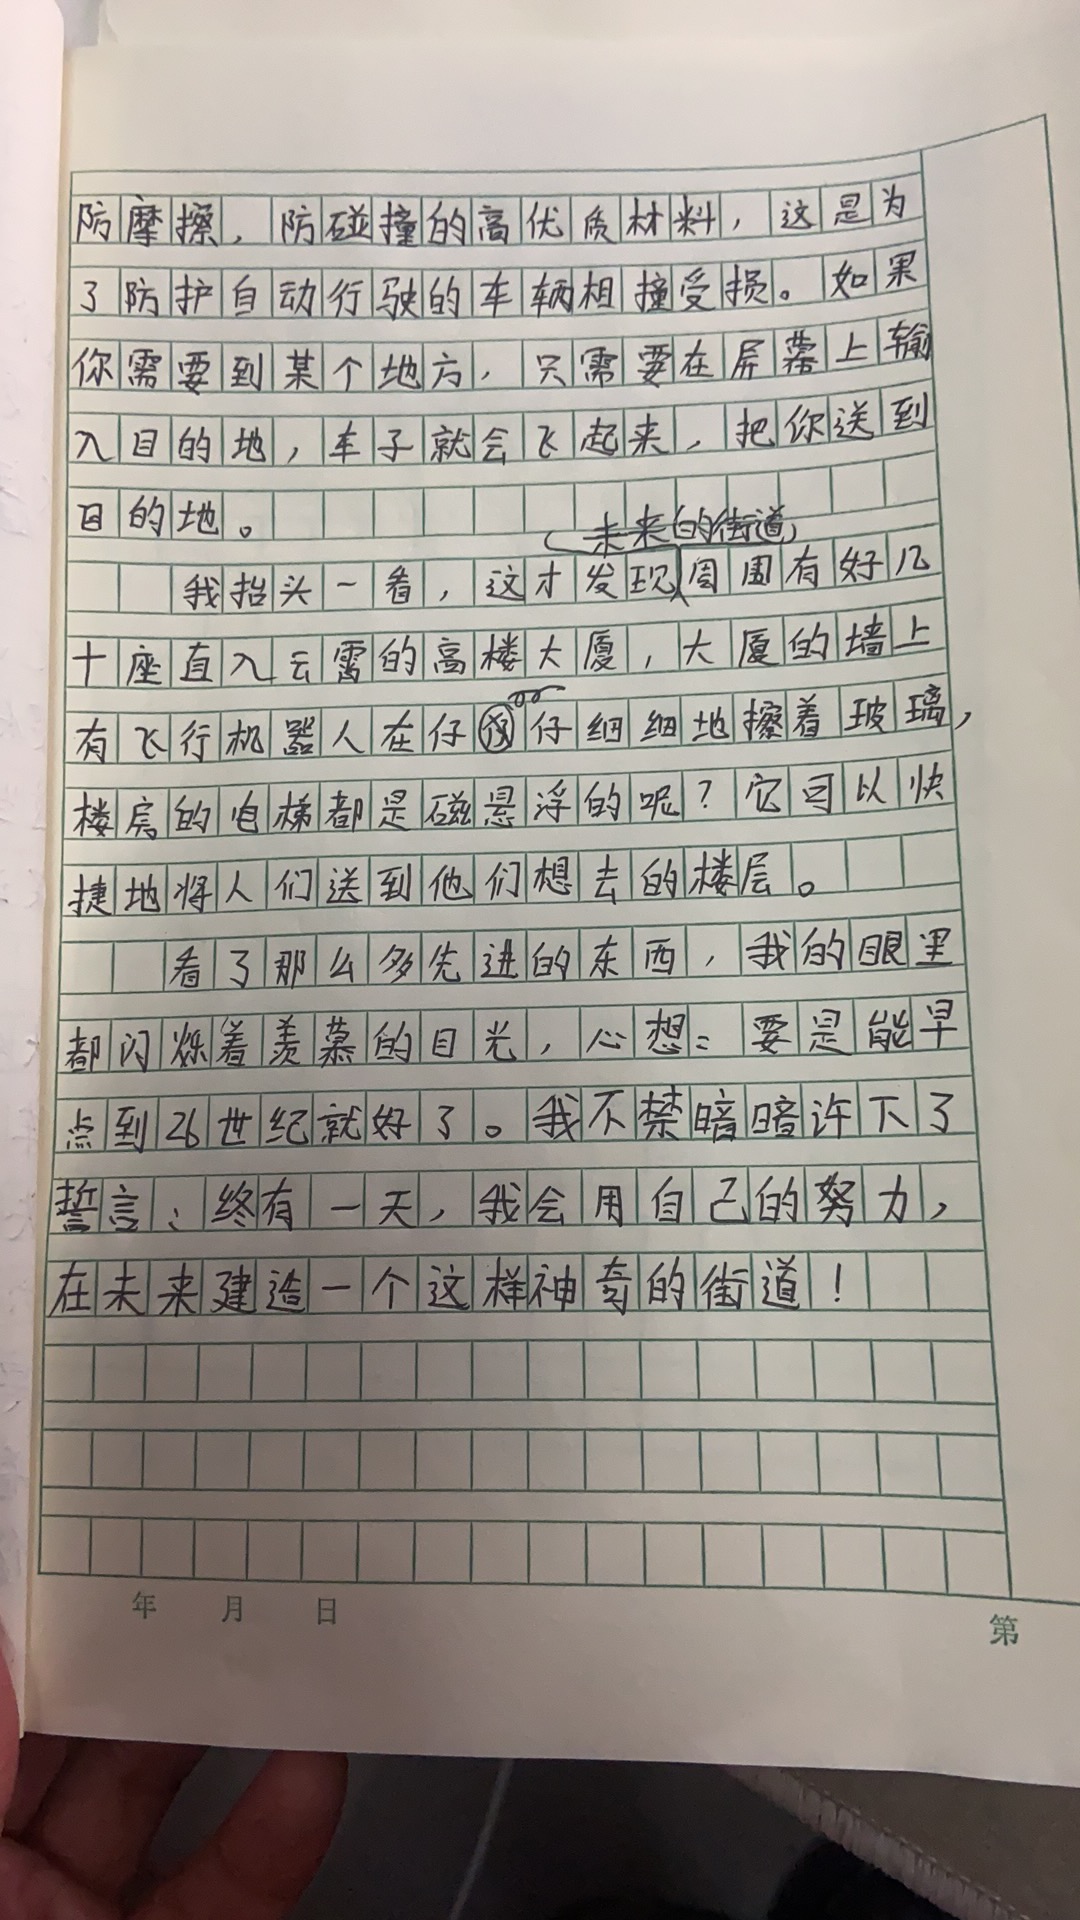 防摩擦，防碰撞的高优质材料，这是为
了防护自动行驶的车辆相撞受损。如果
你需要到某个地方，只需要在屏幕上输
入目的地，车子就会飞起来，把你送到
目的地。
未来的街道
我抬头一看，这才发现周围有好几
十座直入云霄的高楼大厦，大厦的墙上
有飞行机器人在仔仔细细地擦着玻璃，
楼房的电梯都是磁悬浮的呢？它可以快
捷地将人们送到他们想去的楼层。
看了那么多先进的东西，我的眼里
都闪烁着羡慕的目光，心想：要是能早
点到26世纪就好了。我不禁暗暗许下了
誓言：终有一天，我会用自己的努力，
在未来建造一个这样神奇的街道！
年 月 日
第